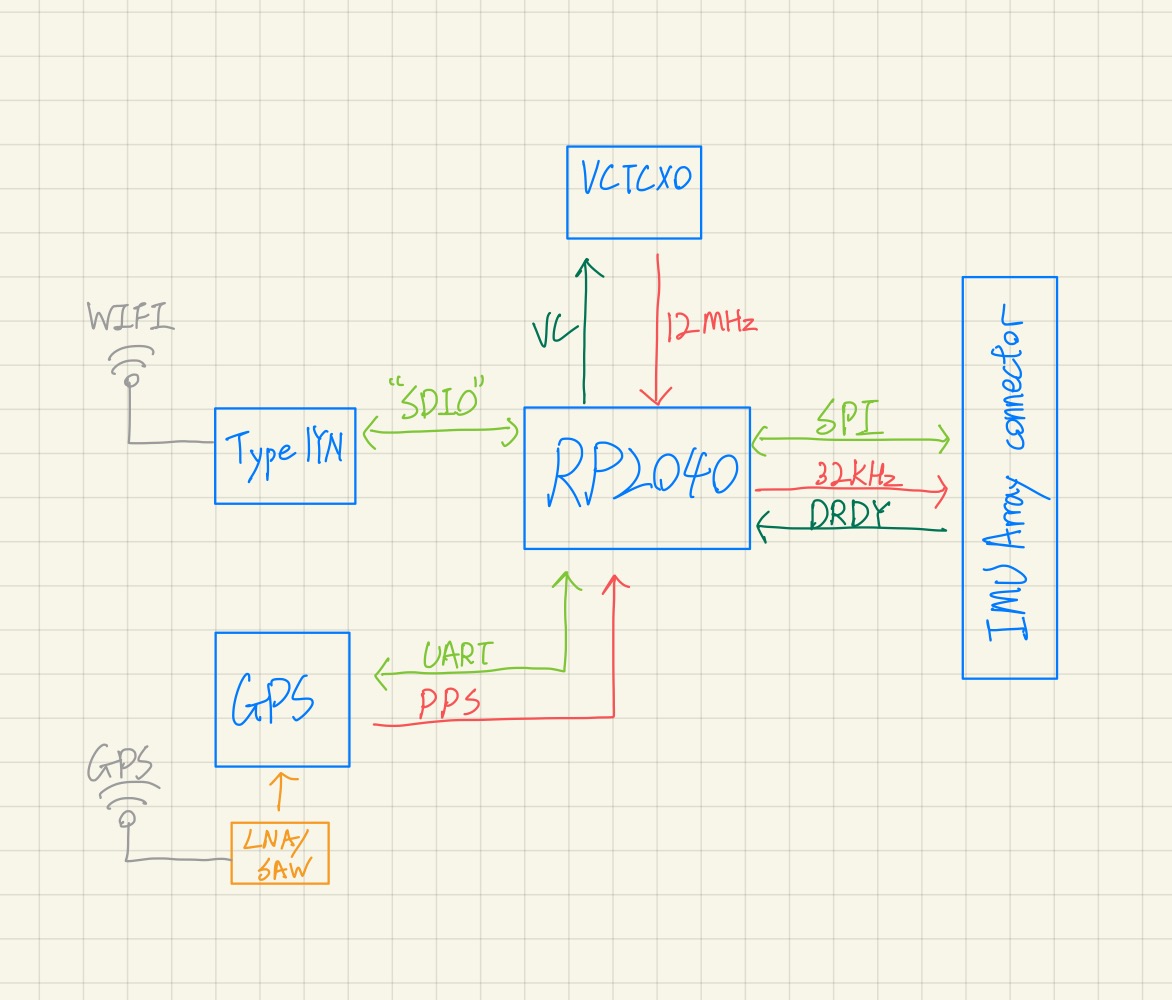 VCTCXO
WIFI
VC
12MHz
"SDIO"
Type 1YN
RP2040
SPI
32KHz
DRDY
IMU Array connector
UART
PPS
GPS
GPS
LNA/
SAW